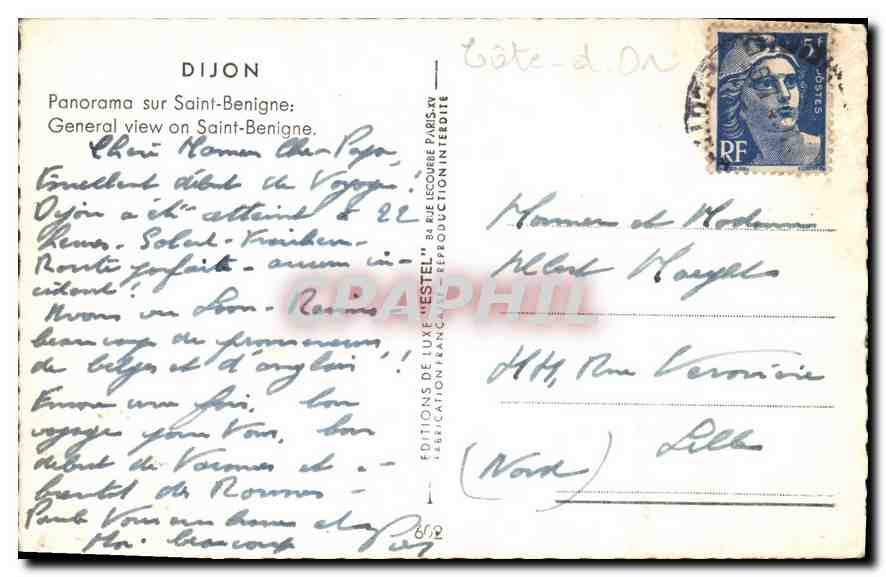 DIJON
Panorama sur Saint-Benigne:
General view on Saint-Benigne.
Cher Papa,
Excellent début de Voyage!
Dijon a été atteint à 22
heures - Soleil - Fraîcheur -
Route parfaite - aucun in-
cident!
Avons vu Laon - Reims
beaucoup de promeneurs
de belges et d'anglais!!
Encore une fois, bon
voyage pour Vous, bon
début de Vacances et à
bientôt de Rouvres -
Vous embrasse et
Moi beaucoup
EDITIONS DE LUXE "ESTEL" 84 RUE LECOURBE PARIS-XV
FABRICATION FRANÇAISE - REPRODUCTION INTERDITE
602
Côte-d'Or
5F
POSTES
RF
Monsieur et Madame
Albert
44, Rue
Lille
(Nord)
CPAPHIL